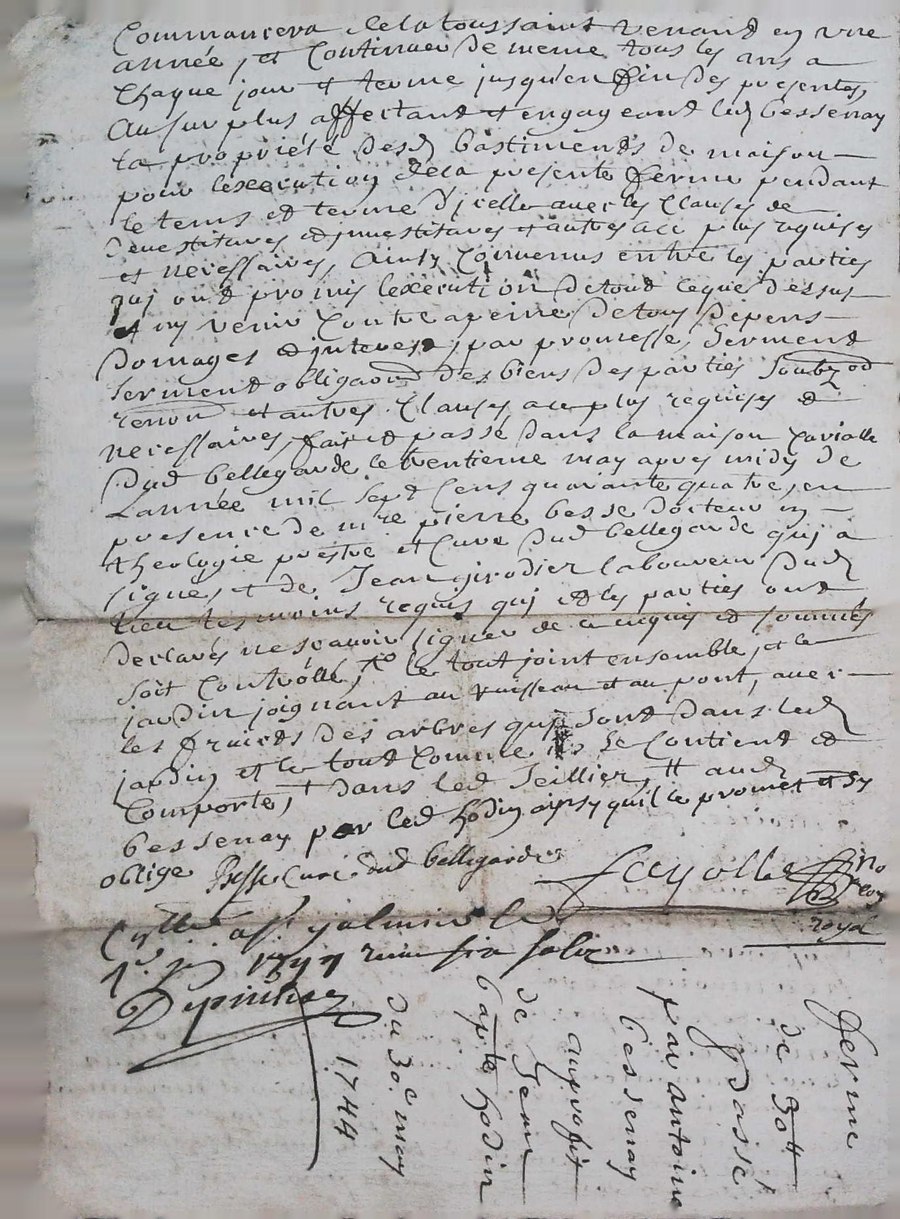 Commancera de la toussaint venant en une
année, et Continuer de meme tous les ans a
Chaque jour et terme jusqu'en fin des presentes,
au surplus affectant et engageant led bessenay
la propriété desd bastiments de maison
pour lexecution de la presente ferme pendant
le tems et terme dycelle avec les Clauses de
devestitures et jnvestitures et autres ace plus requises
et necessaires, ainsy Convenus entre les parties
qui ont promis lexecution de tout ceque dessus
et ny venir Contre apeine de tous depens
domages et jnterest, par promesse, serment
serment obligaon des biens des parties soubz on
renon et autres Clauses ace plus requises et
necessaires, fait et passé dans la maison Curialle
dud bellegarde le trentieme may apres midy de
Lannée mil sept Cens quarante quatre, en
presence de mre pierre besse docteur en
theologie prestre et Curé dud bellegarde qui a
signé, et de Jean girodier laboureur dud
lieu tesmoins requis qui et les parties ont
declarés ne scavoir signer de ce enquis et sommés
soit Controllé, le tout joint ensemble, et le
jardin joignant au ruisseau et au pont, avec
les fruicts des arbres qui sont dans led
jardin et le tout Comme se Contient et
Comporte, dans led seillier, aud
bessenay par led hodin ainsy quil le promet et sy
oblige Besse Curé dud bellegarde
fayolle no
royal
Cylle a st galmier le
1744
Depinhac
ferme
de 30#
passé
par antoine
bessenay
au profit
de Jean
bapte hodin
du 30e may
1744